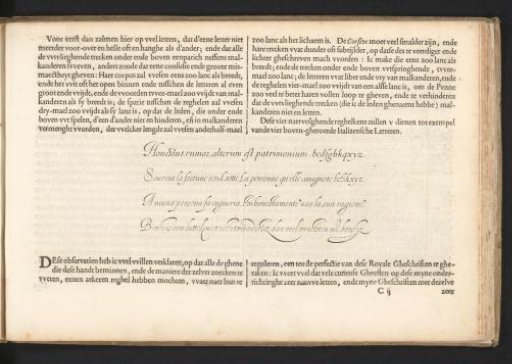 Voor eerst dan zalmen hier op vvel letten, dat d'eene letter niet
meerder voor-over en helle oft en hanghe als d'ander; ende dat alle
de vvrevlieghende trecken onder ende boven eenparich tusschen mal-
kanderen svveven, anders zoude dat eene confusie ende groote mis-
maectheyt gheven: Haer corpus zal vvesen eens zoo lanc als breedt,
ende het vvit oft het open binnen ende tusschen de letteren al even
groot ende vvijdt, ende de vvoorden tvvee-mael zoo vvijdt van mal-
kanderen als sy breedt is, de spatie tusschen de reghelen zal vvesen
dry-mael zoo vvijdt als sy lanc is, op dat de leden, die onder ende
boven uyt spelen, d'een d'ander niet en hinderen, en in malkanderen
vermenght vvorden, der vvelcker lengde zal vvesen anderhalf-mael
zoo lanc als het lichaem is. De Corsive moet veel smalder zijn, ende
hare trecken vvat dunder oft subtijlder, op datse des te veerdiger ende
lichter gheschreven mach vvorden: Ic make die eens zoo lanc als
breedt; ende de trecken onder ende boven uytspringhende, tvvee-
mael zoo lanc; de letteren vvat liber ende vry van malkanderen, ende
de reghelen vier-mael zoo vvijdt van een alsse lanc is, om de Penne
zoo veel te beter haren vollen loop te gheven, ende te verhinderen
dat de vvevlieghende trecken (die ic de leden ghenaemt hebbe) mal-
kanderen niet en letten.
Dese vier naervolghende reghelkens zullen v dienen tot exempel
van de vier boven-gheroerde Italiaensche Letteren.
Honestus rumor, alterum est patrimonium. bcdfghkqxyz
Souvent la fortune rend sotte La personne qu'elle amignote
A niuna persona fa ingiuria, Chi honestamente usa la sua ragione
DEse observatien heb ic vvel vvillen verklaren, op dat alle de ghene
die dese handt beminnen, ende de maniere der zelver zoecken te
vveten, eenen zekeren reghel hebben mochten, vvaer naer hun te
reguleren, om tot de perfectie van dese Royale Gheschriften te ghe-
raken: ic vveet vvel dat vele curieuse Gheesten op dese myne onder-
richtinghe zeer nauvve letten, ende myne Gheschriften met de zelve
C ij
zeer